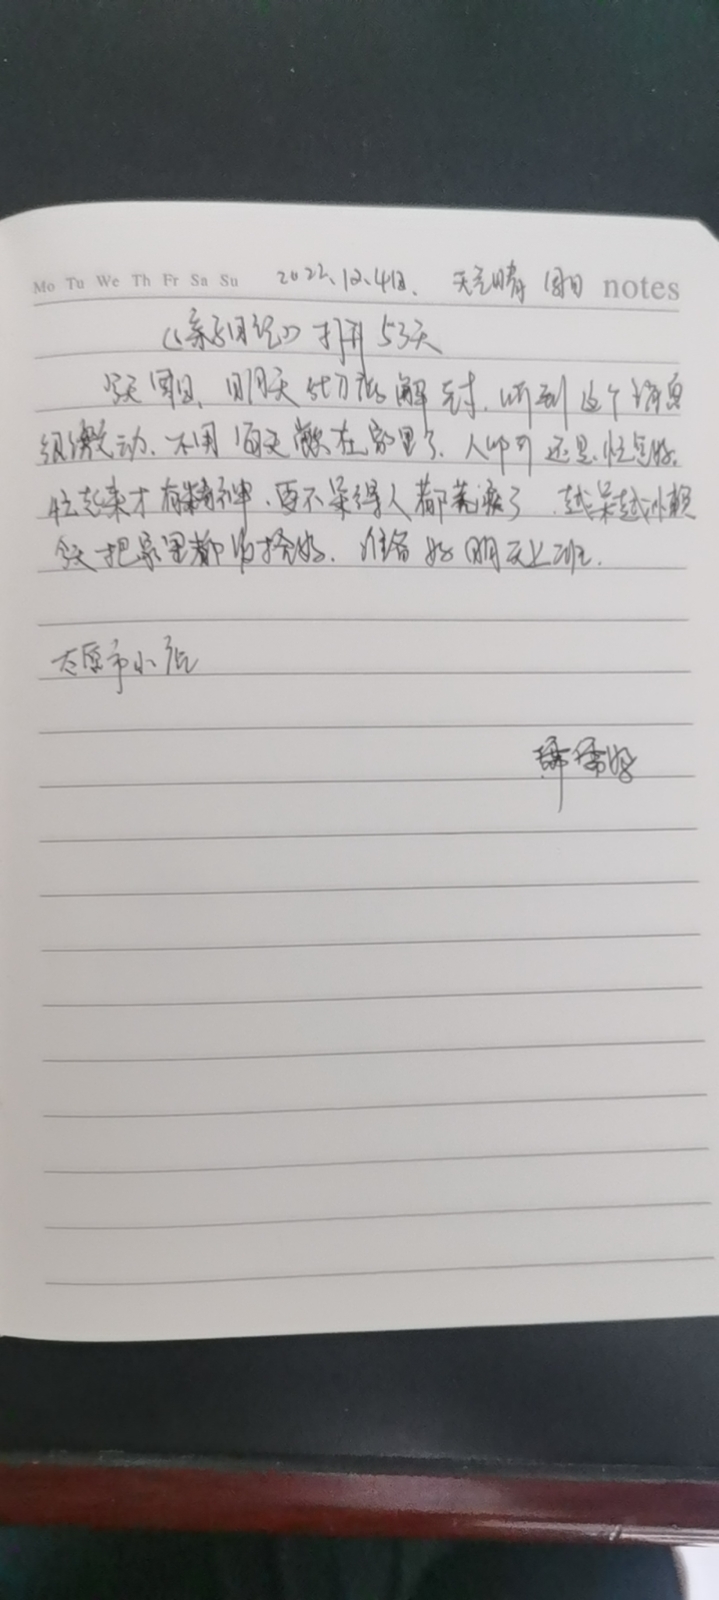 Mo Tu We Th Fr Sa Su 2022、12、4日、天气晴 周日 notes
《亲子日记》打开53天
今天周日、明天 解封、听到这个消息
很激动、不用每天 在家里了、人 还是忙点好、
忙起来才有精神、要不呆得人都 了 越呆越懒
今天把家里都收拾好、准备好明天上班、
太原市小店